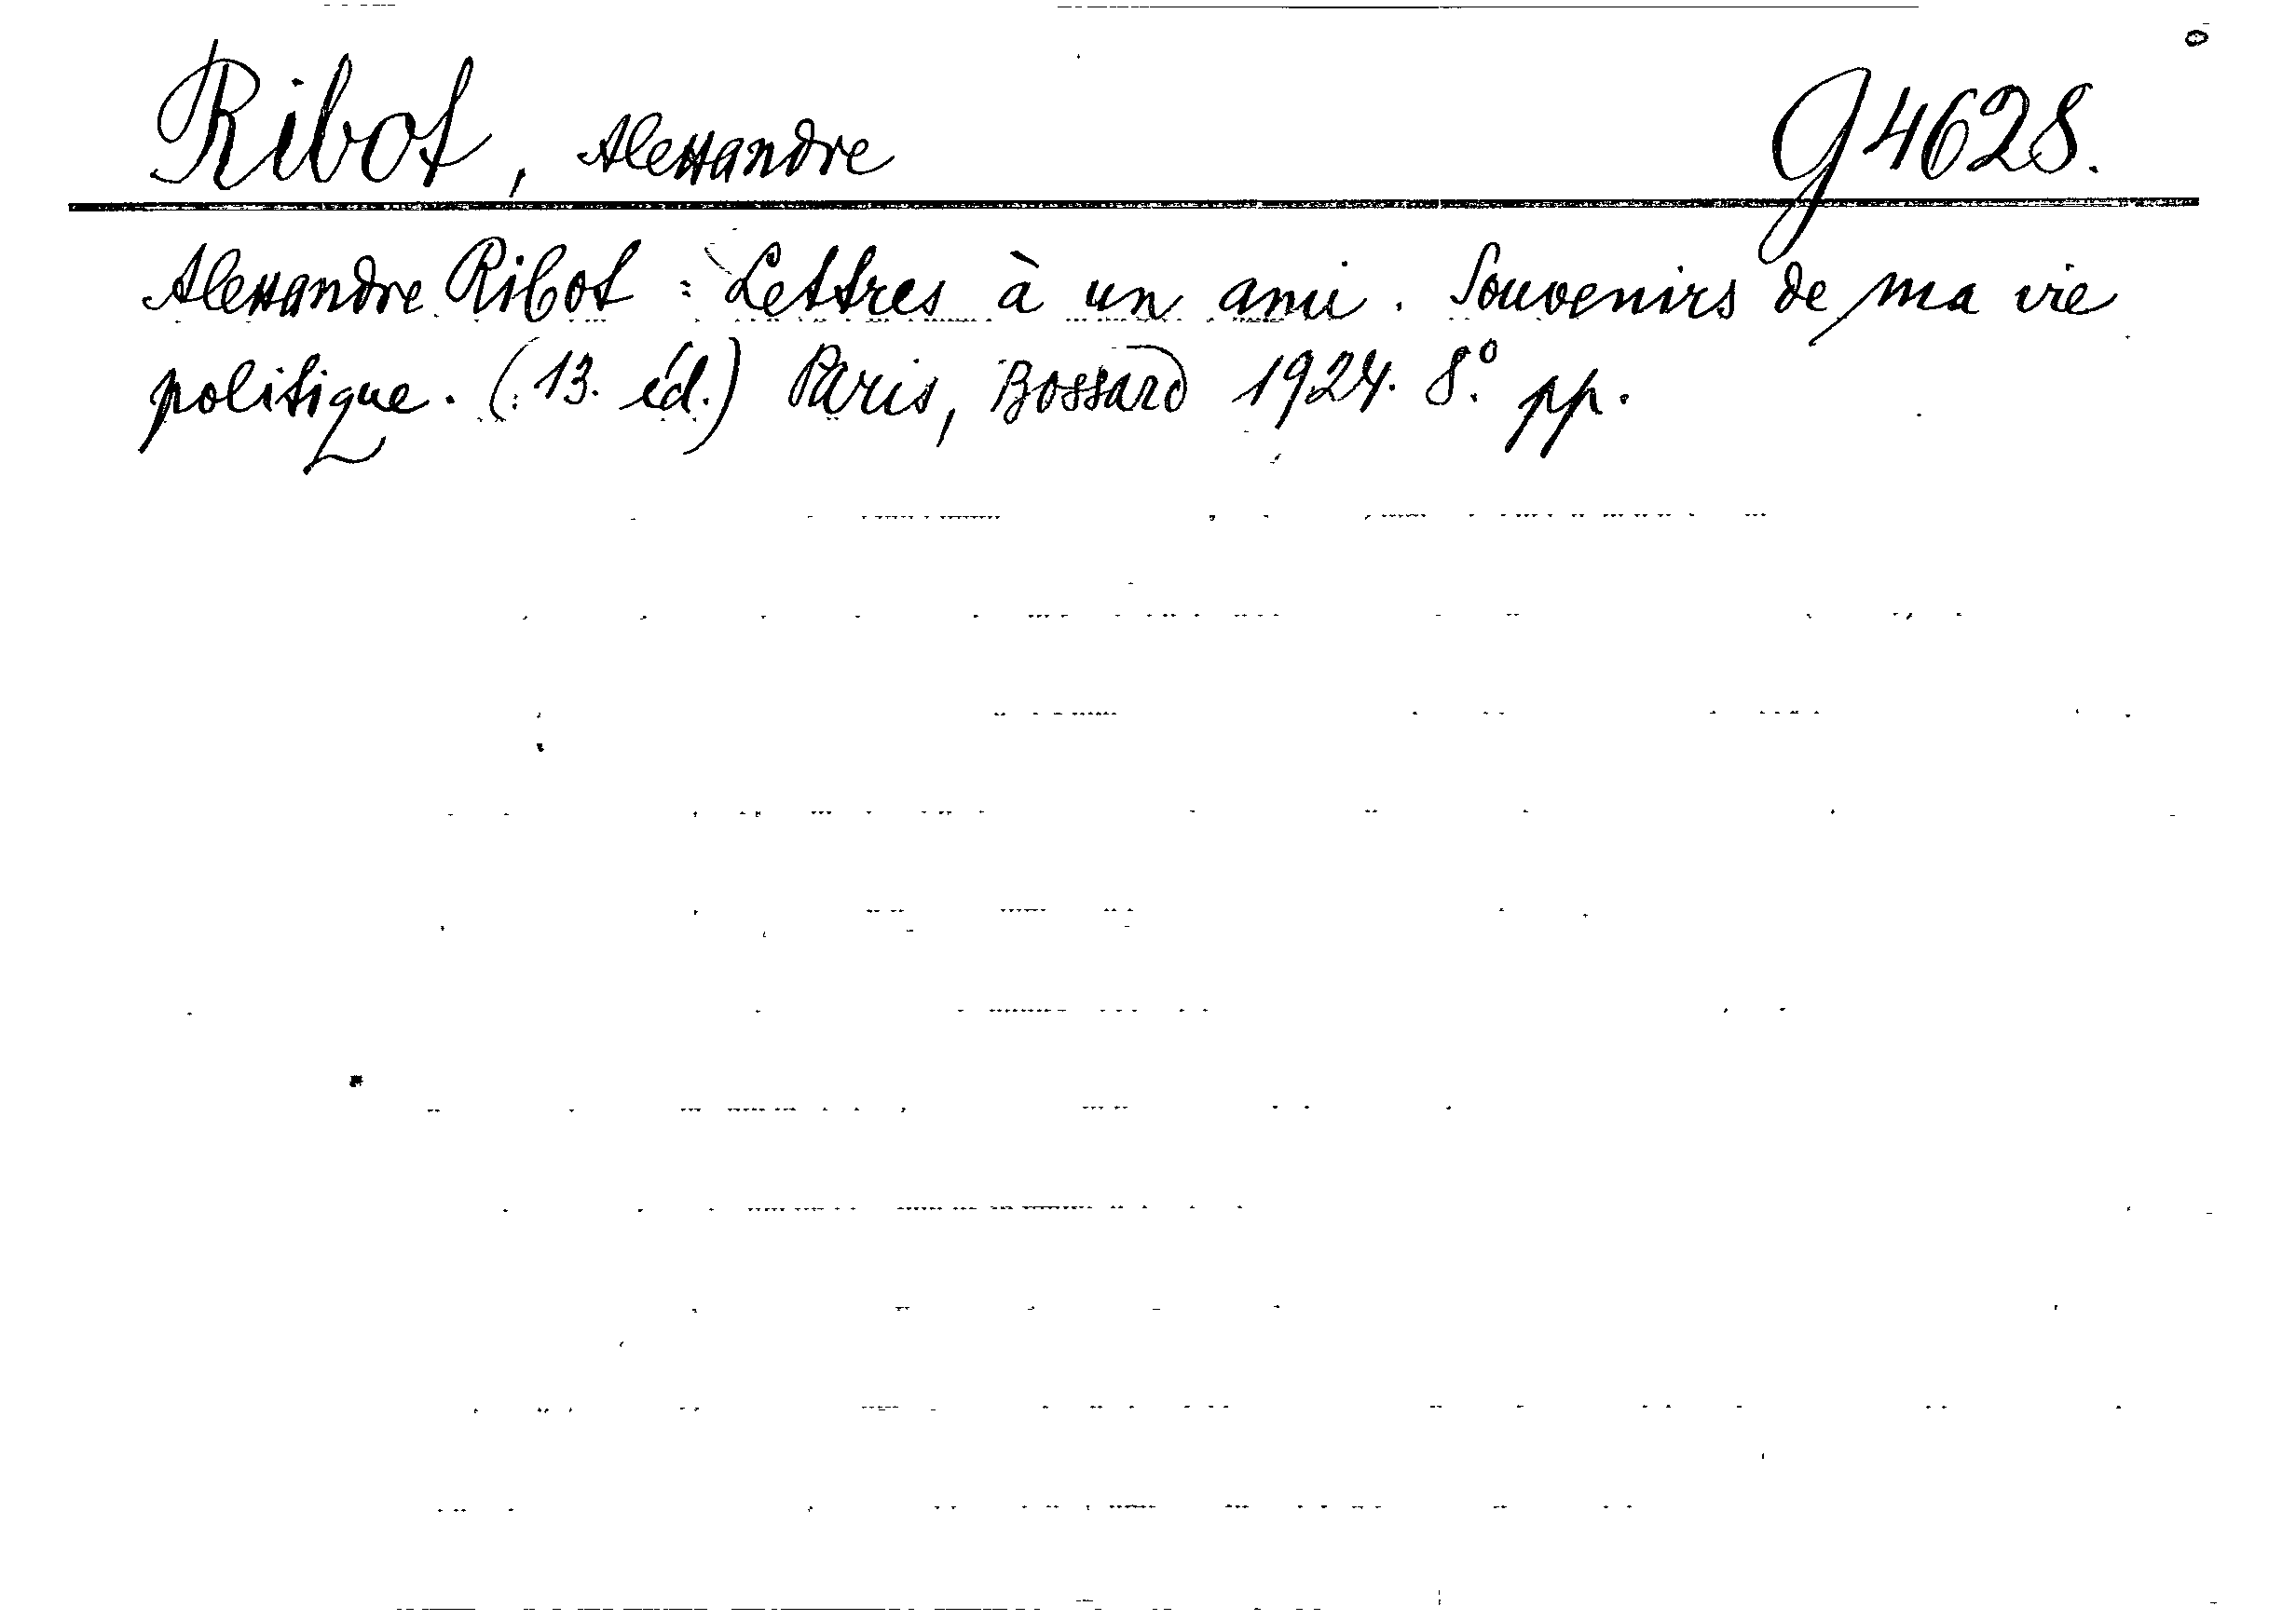 Ribot, Alexandre G 4628.
Alexandre Ribot: Lettres à un ami. Souvenirs de ma vie
politique. (13. éd.) Paris, Bossard 1924. 8.º pp.